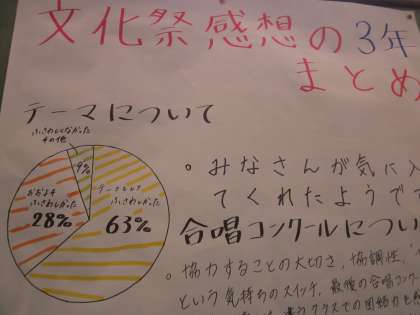 文化祭感想の3年
まとめ
テーマについて
ふさわしくなかった
その他
9%
おおよそ
ふさわしかった
28%
テーマとして
ふさわしかった
63%
。みなさんが気に入
てくれたようで
合唱コンクールについ
。協力することの大切さ、協調性、
という気持ちのスイッチ、最後の合唱コン
クラスでの団結力を